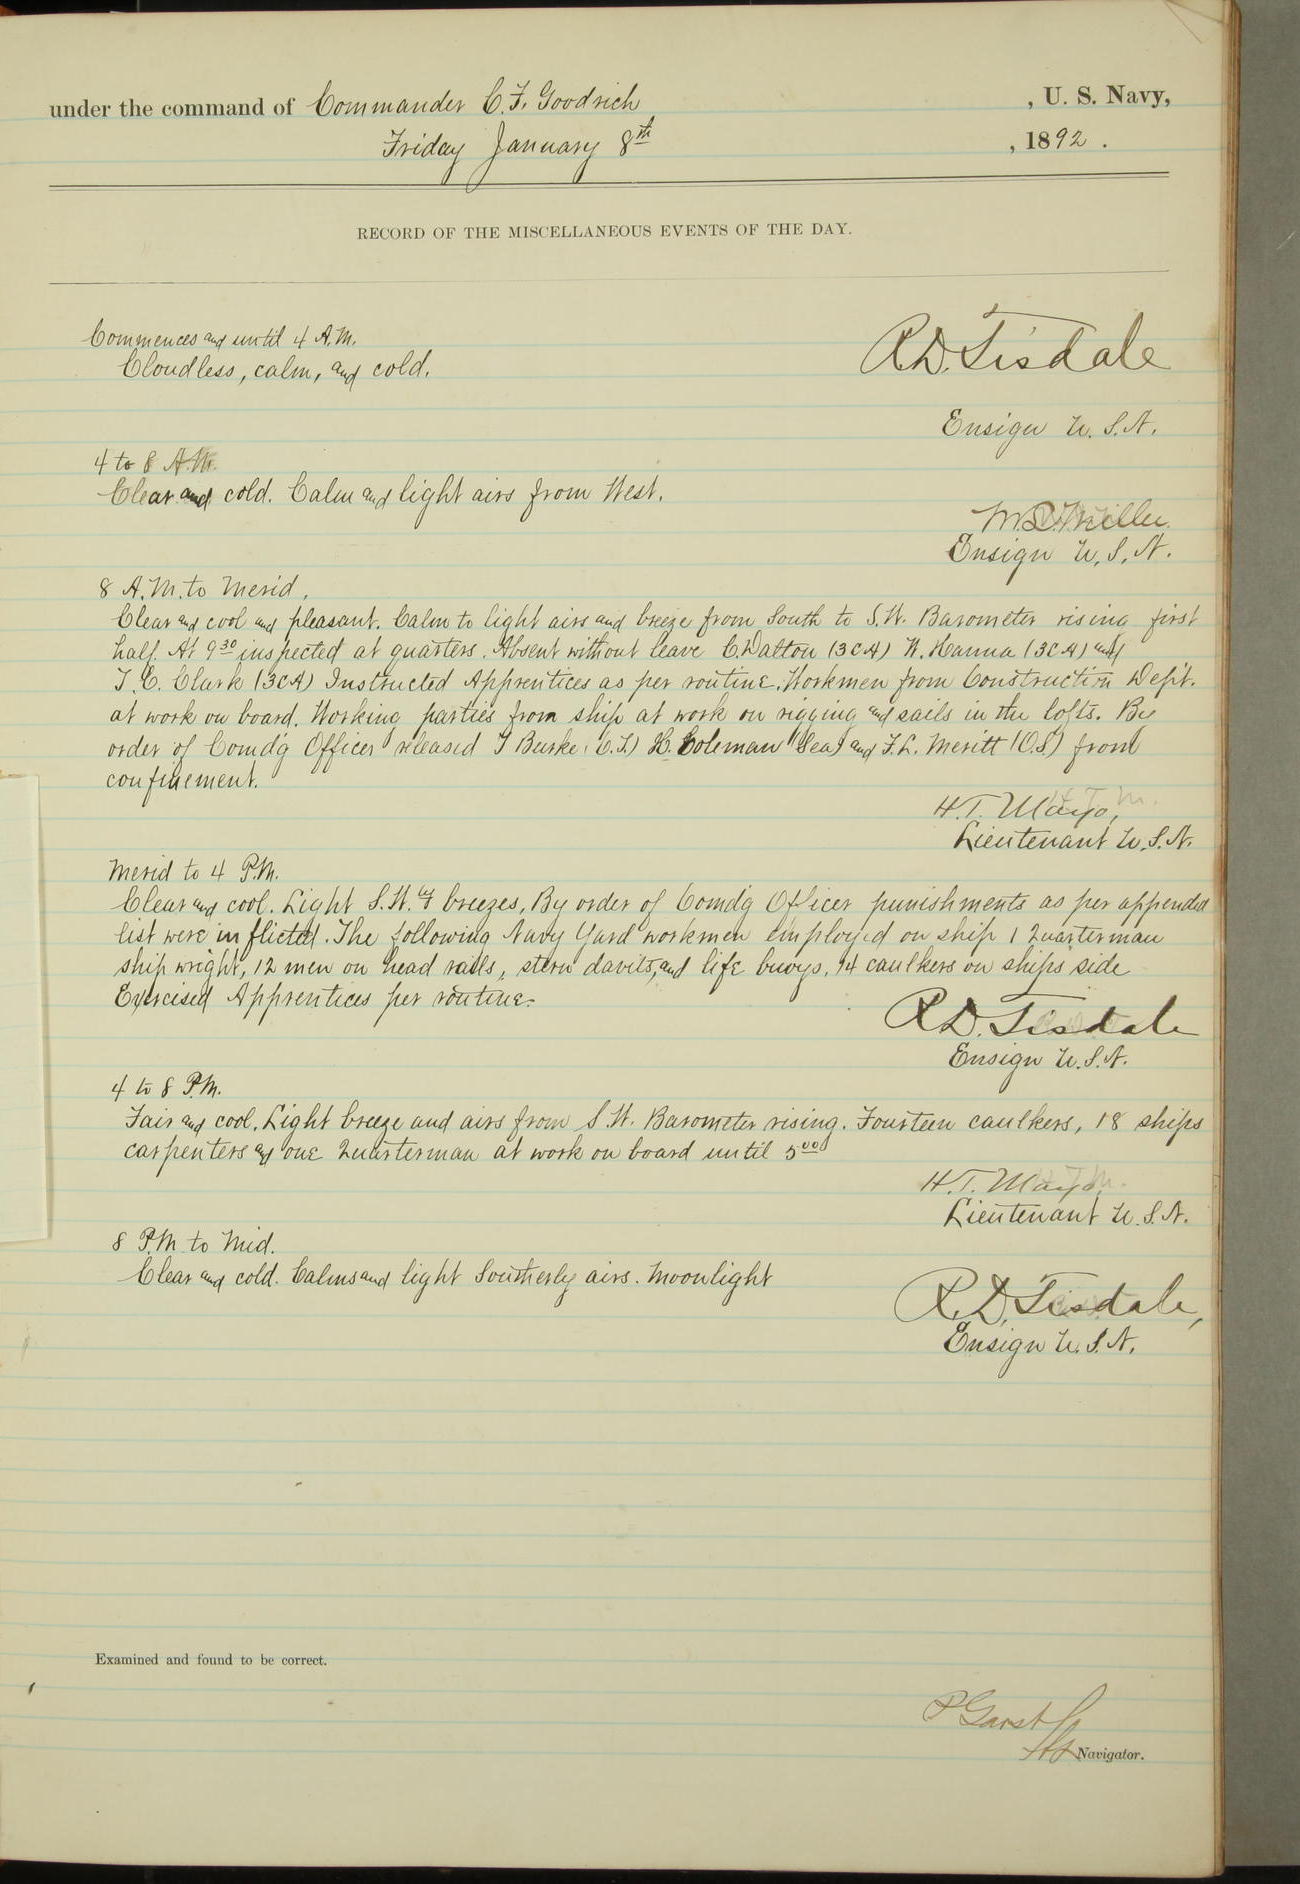 under the command of Commander C. F. Goodrich , U. S. Navy,
Friday January 8th , 1892 .
RECORD OF THE MISCELLANEOUS EVENTS OF THE DAY.
Commences and until 4 A.M.
Cloudless, calm, and cold.
R.D. Tisdale
Ensign U.S.N.
4 to 8 A.M.
Clear and cold. Calm and light airs from West.
Miller
Ensign U.S.N.
8 A.M. to Merid.
Clear and cool and pleasant. Calm to light airs and breeze from South to S.W. Barometer rising first
half. At 9 30 inspected at quarters. Absent without leave C. Dalton (3CA) W. Hanna (3CA) and
T. C. Clark (3CA) Instructed Apprentices as per routine. Workmen from Construction Dep't.
at work on board. Working parties from ship at work on rigging and sails in the lofts. By
order of Comdg Officer released T Burke (C.T.) H. Coleman (Sea) and F.L. Meritt (O.S) from
confinement.
H.T. Mayo,
Lieutenant U.S.N.
Merid to 4 P.M.
Clear and cool. Light S.W. breezes. By order of Comdg Officer punishments as per appended
list were inflicted. The following Navy Yard workmen employed on ship 1 Quarterman
ship wright, 12 men on head rails, stern davits, and life buoys, 14 caulkers on ships side
Exercised Apprentices per routine.
R.D. Tisdale
Ensign U.S.N.
4 to 8 P.M.
Fair and cool. Light breeze and airs from S.W. Barometer rising. Fourteen caulkers, 18 ships
carpenters and one Quarterman at work on board until 5 00
H.T. Mayo
Lieutenant U.S.N.
8 P.M. to Mid.
Clear and cold. Calms and light Southerly airs. Moonlight
R.D. Tisdale,
Ensign U.S.N.
Examined and found to be correct.
P Garst
Navigator.